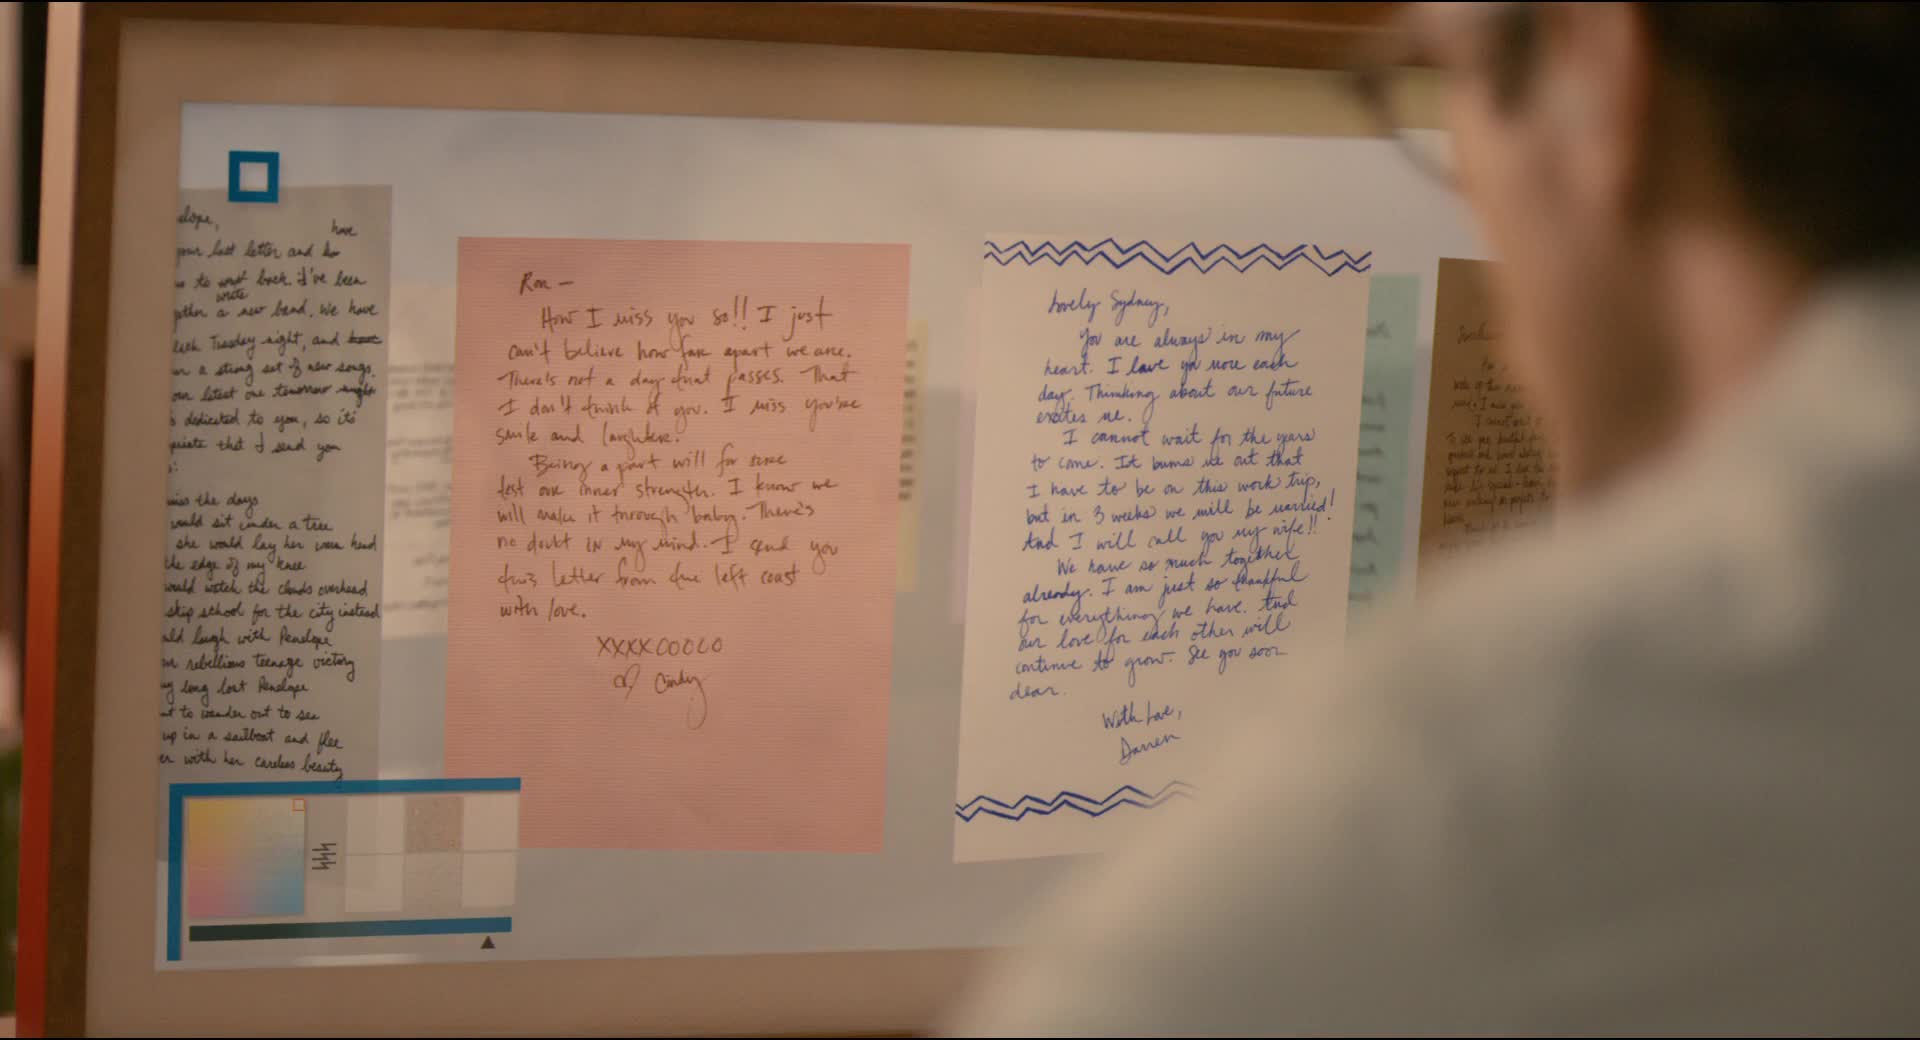 elope,
have
your last letter and so
to want back. I've been
write
gether a new band. We have
each Tuesday night, and
a strong set of new songs.
our latest one tomorrow night
dedicated to you, so it's
that I send you
miss the days
would sit under a tree
she would lay her warm head
the edge of my knee
would watch the clouds overhead
skip school for the city instead
ld laugh with Penelope
our rebellious teenage victory
my long lost Penelope
t to wander out to sea
up in a sailboat and flee
er with her careless beauty
Ron —
How I miss you so!! I just
can't believe how far apart we are.
There's not a day that passes. That
I don't think of you. I miss you're
smile and laughter.
Being a part will for sure
test our inner strength. I know we
will make it through baby. There's
no doubt in my mind. I send you
this letter from the left coast
with love.
XXXXOOOO
♡ Cindy
Lovely Sydney,
You are always in my
heart. I love you more each
day. Thinking about our future
excites me.
I cannot wait for the years
to come. It bums me out that
I have to be on this work trip,
but in 3 weeks we will be married!
And I will call you my wife!!
We have so much together
already. I am just so thankful
for everything we have. And
our love for each other will
continue to grow. See you soon
dear.
With Love,
Darren